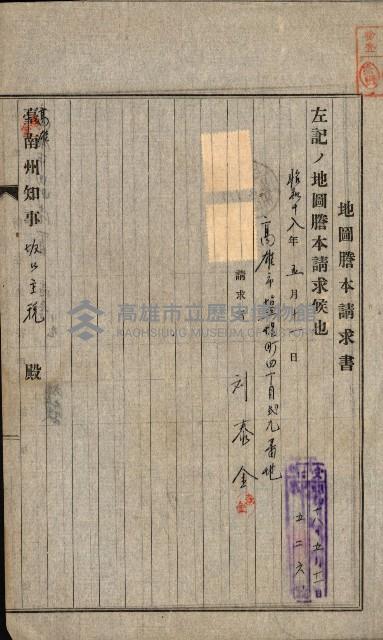 地圖謄本請求書
左記ノ地圖謄本請求候也
昭和十八年五月 日
高雄市塩埕町四丁目 九番地
請求
刘泰金
高雄
臺南州知事 坂口主税 殿
十八年五月十一日
五二六
高雄市立歷史博物館
KAOHSIUNG MUSEUM OF HISTORY